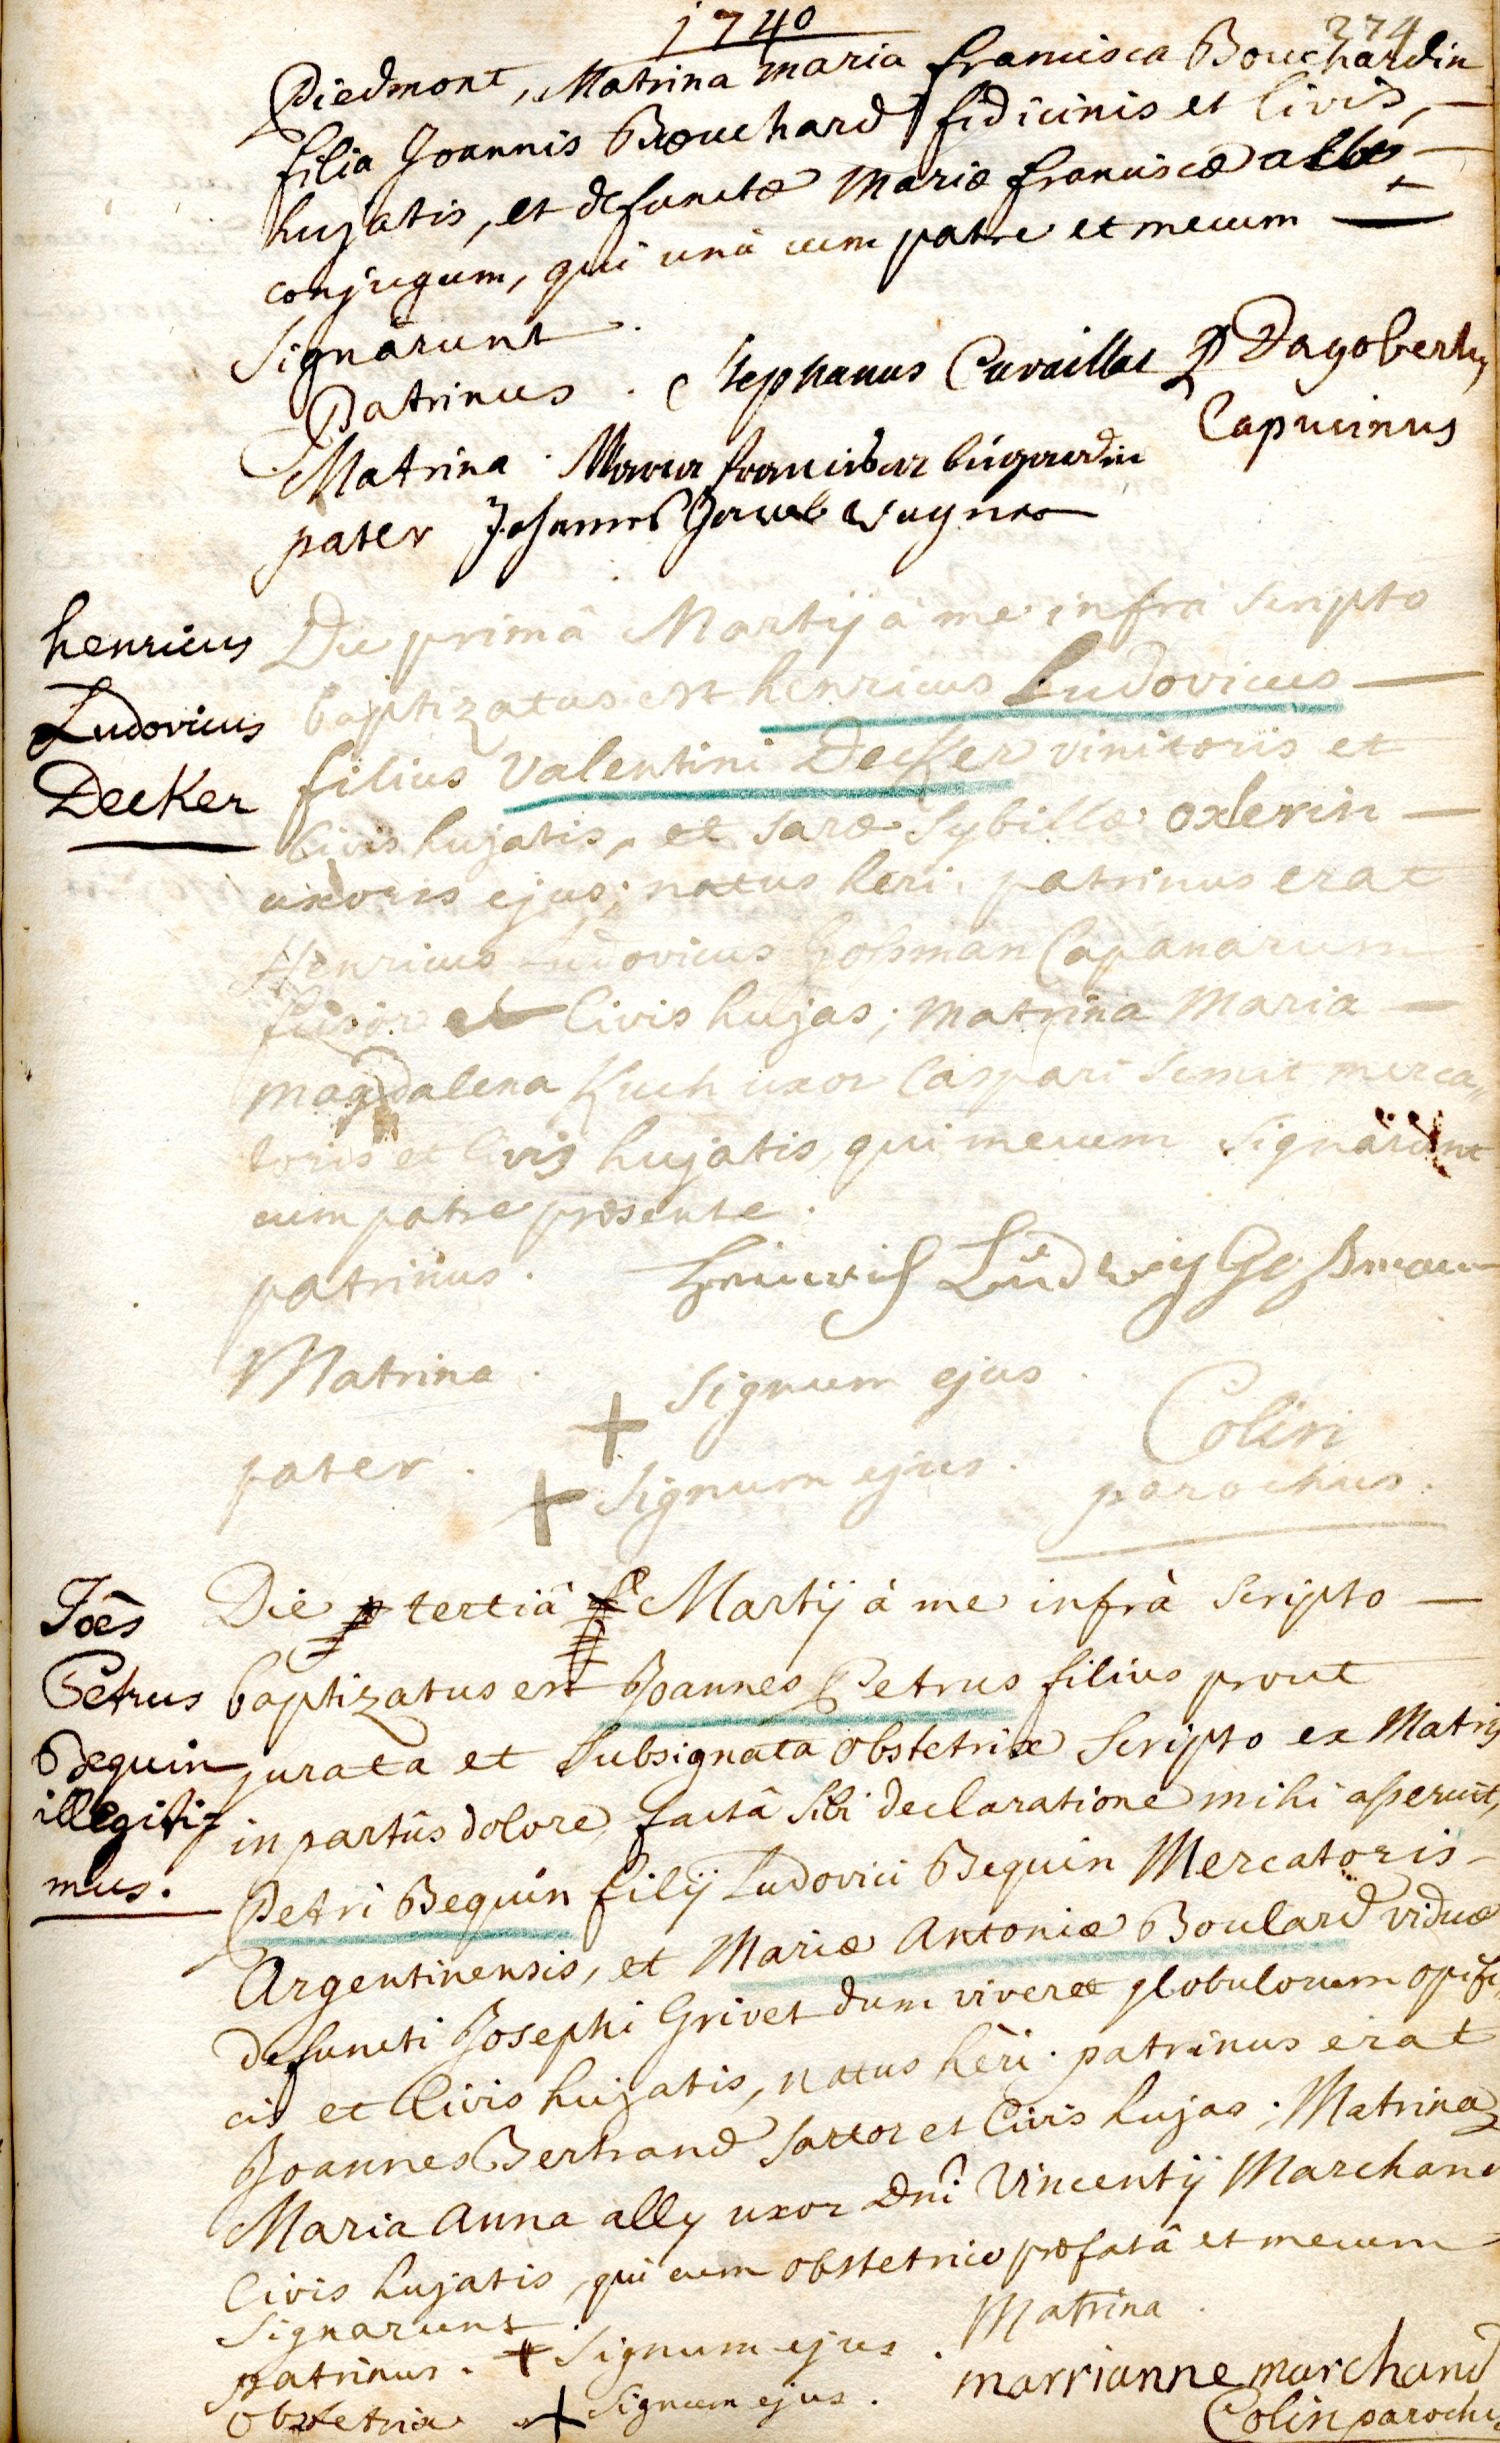 1740
274
Piedmont, Matrina Maria Francisca Bouchardin
filia Joannis Bouchard fidicinis et Civis,
hujatis, et defunctæ Mariæ Franciscæ
conjugum, qui unà cum patre et mecum
signârunt.
Patrinus. Stephanus Cuvaillac P Dagobertus
Capucinus
Matrina. Maria
pater Johannes Jacob Wagner
henricus
Ludovicus
Decker
Die primâ Martij à me infra scripto
baptizatus est henricus Ludovicus
filius Valentini Decker vinitoris et
Civis hujatis, et Saræ Sybillæ oxlerin
uxoris ejus; natus heri. patrinus erat
Henricus Ludovicus Goßman Capanarum
fusor et Civis hujas; Matrina Maria
Magdalena Kuch uxor Caspari Semit merca„
toris et Civis hujatis, qui mecum signârunt
cum patre præsente.
patrinus. Heinrich Ludwig Goßmann
Matrina. + signum ejus.
Colin
pater. + signum ejus. parochus.
Joês
Petrus
Bequin
illegiti=
mus.
Die tertiâ Martij à me infrà scripto
baptizatus est Joannes Petrus filius prout
jurata et subsignata obstetrix scripto ex Matris
in partûs dolore, factâ sibi declaratione mihi asseruit,
Petri Bequin filij Ludovici Bequin Mercatoris
Argentinensis, et Mariæ Antoniæ Boulard viduæ
defuncti Josephi Grivet dum viveret globulorum opifi„
cis et Civis hujatis, natus hèri. patrinus erat
Joannes Bertrand Sartor et Civis hujas; Matrina
Maria Anna ally uxor Dnî Vincentij Marchand
Civis hujatis, qui cum obstetrice præfatâ et mecum
signarunt
Matrina.
patrinus. + signum ejus.
marrianne marchand
obstetrix + signum ejus.
Colin parochus